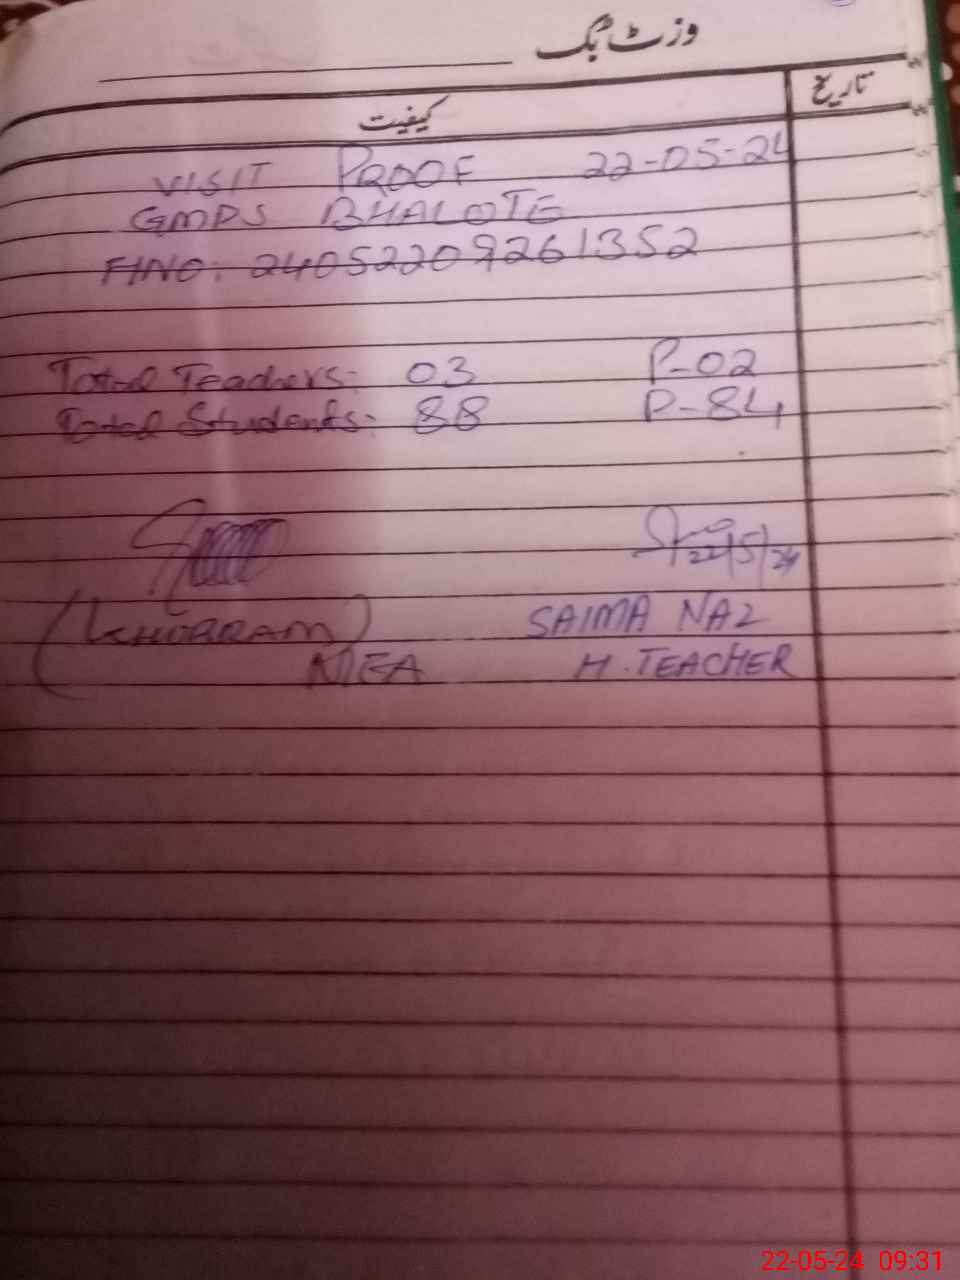 وزٹ بک
کیفیت تاریخ
VISIT PROOF 22-05-24
GMPS BHALOTE
FINO: 24052209261352
Total Teachers:- 03 P-02
Total Students:- 88 P-84
22/5/24
(KHURRAM) SAIMA NAZ
MEA H.TEACHER
22-05-24 09:31